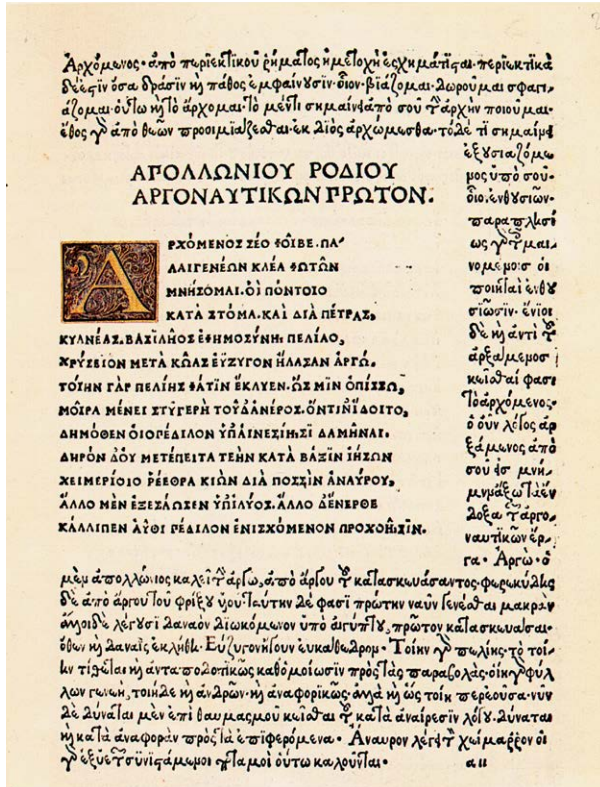 Ἀρχόμενος· ἀπὸ περιεκτικοῦ ῥήματος ἡ μετοχὴ ἐσχημάτισται· περιεκτικὰ
δέ ἐστιν ὅσα δρᾶσιν καὶ πάθος ἐμφαίνουσιν· οἷον· βιάζομαι· δωροῦμαι σφαγι
άζομαι· οὕτω καὶ τὸ ἄρχομαι· τὸ μέν τι σημαίνει ἀπὸ σοῦ τὴν ἀρχὴν ποιοῦμαι·
ἔθος γὰρ ἀπὸ θεῶν προοιμιάζεσθαι· ἐκ Διὸς ἀρχώμεσθα· τὸ δέ τι σημαίνει
ΑΠΟΛΛΩΝΙΟΥ ΡΟΔΙΟΥ
ΑΡΓΟΝΑΥΤΙΚΩΝ ΠΡΩΤΟΝ.
ΑΡΧΌΜΕΝΟΣ ΣΈΟ ΦΟῖΒΕ. ΠΑ-
ΛΑΙΓΕΝΈΩΝ ΚΛΈΑ ΦΩΤΩΝ
ΜΝΉΣΟΜΑΙ. ΟἻ ΠΟΝΤΟΙΟ
ΚΑΤᾺ ΣΤΌΜΑ. ΚΑῚ ΔΙᾺ ΠΈΤΡΑΣ,
ΚΥΑΝΈΑΣ. ΒΑΣΙΛΗ͂ΟΣ ἘΦΗΜΟΣΎΝΗ ΠΕΛΊΑΟ,
ΧΡΎΣΕΙΟΝ ΜΕΤᾺ ΚΩ͂ΑΣ ἘΎΖΥΓΟΝ ἬΛΑΣΑΝ ἈΡΓΏ.
ΤΟΊΗΝ ΓᾺΡ ΠΕΛΊΗΣ ΦΆΤΙΝ ἜΚΛΥΕΝ. ὭΣ ΜΙΝ ὈΠΊΣΣΩ,
ΜΟΪ͂ΡΑ ΜΈΝΕΙ ΣΤΥΓΕΡῊ ΤΟΥ͂Δ' ἈΝΈΡΟΣ. ὍΝΤΙΝ' ἼΔΟΙΤΟ,
ΔΗΜΌΘΕΝ ΟἸΟΠΈΔΙΛΟΝ ὙΠ' ἘΝΝΕΣΊΗΣΙ ΔΑΜΗ͂ΝΑΙ.
ΔΗΡῸΝ Δ' ΟΥ̓ ΜΕΤΈΠΕΙΤΑ ΤΕῊΝ ΚΑΤᾺ ΒΆΞΙΝ ἸΉΣΩΝ
ΧΕΙΜΕΡΊΟΙΟ ῬΈΕΘΡΑ ΚΙῺΝ ΔΙᾺ ΠΟΣΣῚΝ ἈΝΑΎΡΟΥ,
ἌΛΛΟ ΜῈΝ ἘΞΕΣΆΩΣΕΝ ὙΠ' ἸΛΎΟΣ. ἌΛΛΟ Δ' ἜΝΕΡΘΕ
ΚΆΛΛΙΠΕΝ ΑΥ̓͂ΘΙ ΠΈΔΙΛΟΝ ἘΝΙΣΧΌΜΕΝΟΝ ΠΡΟΧΟΗ͂ΙΣΙΝ.
ἐξουσιαζόμε
μος ὑπὸ σοῦ·
οἷον ἐνθουσιῶν·
παραπλησί
ως γὰρ τοῖς μαι
νομένοις οἱ
ποιηταὶ ἐνθου
σιῶσιν· ἔνιοι
δὲ καὶ ἀντὶ τοῦ
ἀρξάμενος
κεῖσθαί φασι
τὸ ἀρχόμενος·
ὁ οὖν λόγος ἀρ
ξάμενος ἀπὸ
σοῦ εἰς μνή
μην ἄξω τὰ ἔν
δοξα τῶν ἀργο
ναυτικῶν ἔρ
γα· Ἀργώ· ὁ
μὲν ἀπολλώνιος καλεῖ τὴν ἀργώ, ἀπὸ ἄργου τοῦ κατασκευάσαντος· φερεκύδης
δὲ ἀπὸ ἄργου τοῦ φρίξου υἱοῦ· ταύτην δέ φασι πρώτην ναῦν γενέσθαι μακράν
ἄλλοι δὲ λέγουσι δαναὸν διωκόμενον ὑπὸ αἰγύπτου, πρῶτον κατασκευάσαι·
ὅθεν καὶ δαναῒς ἐκλήθη· Εὔζυγον ἤτοι εὐκάθεδρον· Τοίην γὰρ πελίης· τὸ τοί
ην τίθεται καὶ ἀνταποδοτικῶς καθ' ὁμοίωσιν πρὸς τὰς παραβολάς· οἵη γὰρ φύλ
λων γενεή, τοιήδε καὶ ἀνδρῶν· καὶ ἀναφορικῶς· ἀλλὰ καὶ ὣς τοίη περ ἐοῦσα· νῦν
δὲ δύναται μὲν ἐπὶ θαυμασμοῦ κεῖσθαι τοῦ κατὰ ἀναίρεσιν λόγου· δύναται
καὶ κατὰ ἀναφορὰν πρὸς τὰ ἐπιφερόμενα· Ἄναυρον λέγει τὸν χείμαρρον οἱ
γὰρ ἐξ ὑετῶν συνιστάμενοι ποταμοὶ οὕτω καλοῦνται·
αιι